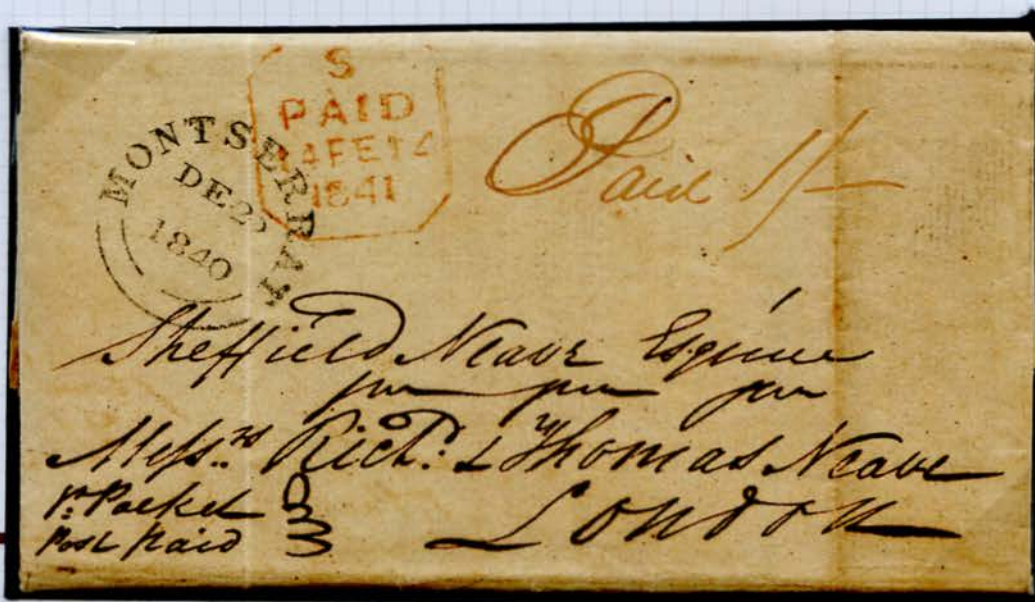 S
PAID
FE
1841
MONTSERRAT
DE 2
1840
Paid 1/-
Sheffield Neave Esquire
Messrs. Richd. & Thomas Neave
London
pr. Packet
Post Paid